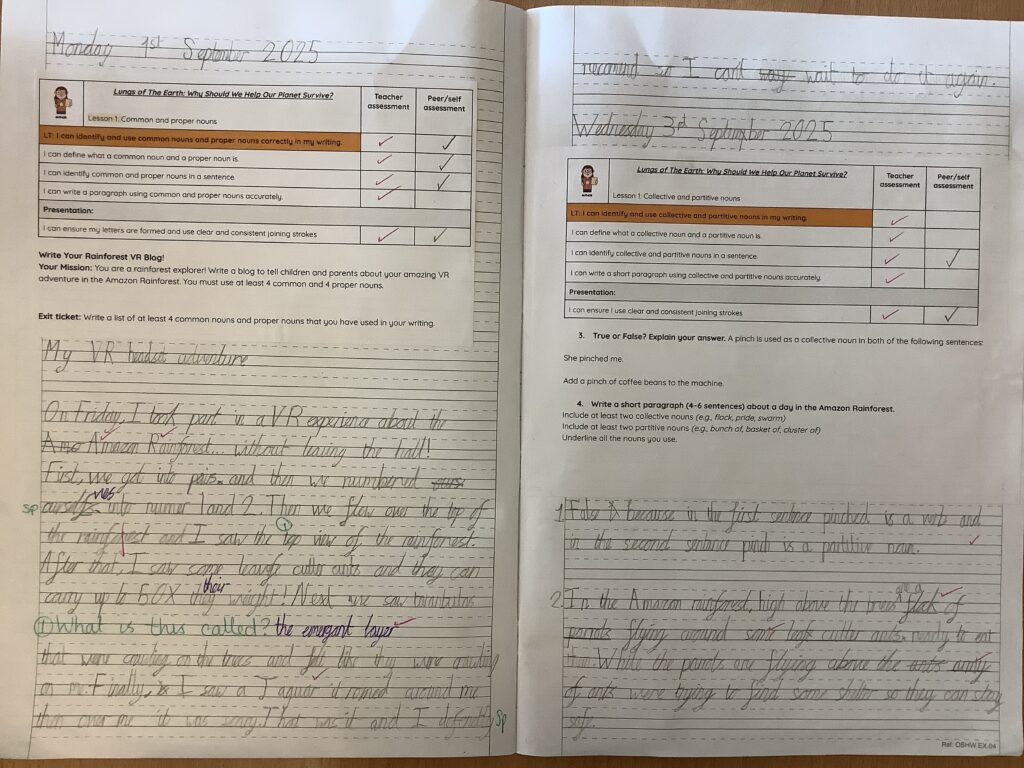 Monday 1st September 2025
Lungs of The Earth: Why Should We Help Our Planet Survive?
Lesson 1: Common and proper nouns
Teacher assessment
Peer/self assessment
LT: I can identify and use common nouns and proper nouns correctly in my writing.
I can define what a common noun and a proper noun is.
I can identify common and proper nouns in a sentence.
I can write a paragraph using common and proper nouns accurately.
Presentation:
I can ensure my letters are formed and use clear and consistent joining strokes
Write Your Rainforest VR Blog!
Your Mission: You are a rainforest explorer! Write a blog to tell children and parents about your amazing VR
adventure in the Amazon Rainforest. You must use at least 4 common and 4 proper nouns.
Exit ticket: Write a list of at least 4 common nouns and proper nouns that you have used in your writing.
My VR headset adventure
On Friday, I took part in a VR experience about the
Amazon Rainforest... without leaving the hall!
First, we got into pairs and then we numbered
sp ourselves into numer 1 and 2. Then we flew over the top of
the rainforest and I saw the top view of the rainforest.
After that, I saw some leaufe cutter ants and they can
carry up to 50X their weight! Next we saw
① What is this called? the emergant layer
that were crawling on the trees and felt like they were crawling
on me. Finally, I saw a Jaguar it romed around me
then over me it was scary. That was it and I sp
recomind so I cant wait to do it again.
Wednesday 3rd September 2025
Lungs of The Earth: Why Should We Help Our Planet Survive?
Lesson 1: Collective and partitive nouns
Teacher assessment
Peer/self assessment
LT: I can identify and use collective and partitive nouns in my writing.
I can define what a collective noun and a partitive noun is.
I can identify collective and partitive nouns in a sentence.
I can write a short paragraph using collective and partitive nouns accurately.
Presentation:
I can ensure I use clear and consistent joining strokes
3. True or False? Explain your answer. A pinch is used as a collective noun in both of the following sentences:
She pinched me.
Add a pinch of coffee beans to the machine.
4. Write a short paragraph (4-6 sentences) about a day in the Amazon Rainforest.
Include at least two collective nouns (e.g., flock, pride, swarm)
Include at least two partitive nouns (e.g., bunch of, basket of, cluster of)
Underline all the nouns you use.
1. False because in the first sentence pinched is a verb and
in the second sentence pinch is a partitive noun.
2. In the Amazon rainforest, high above the trees flock of
parrots flying around some leafe cutter ants ready to eat
them. While the parrots are flying above the army
of ants were trying to find some shelter so they can stay
safe.
Ref: OSHW.EX.04